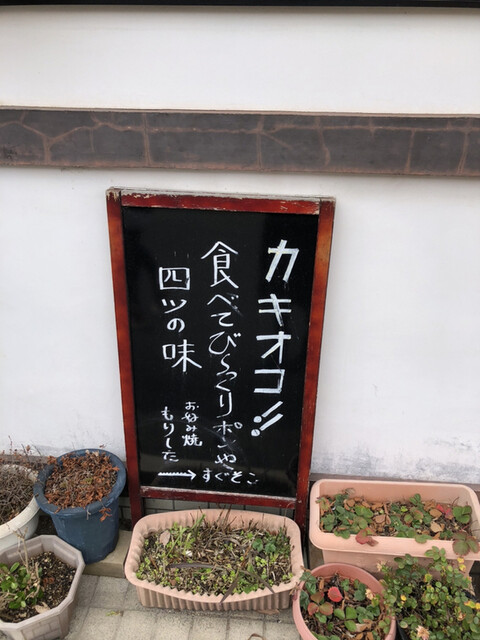 カキオコ!!
食べてび〜っくりポンや
四ツの味
お好み焼
もりした
→すぐそこ